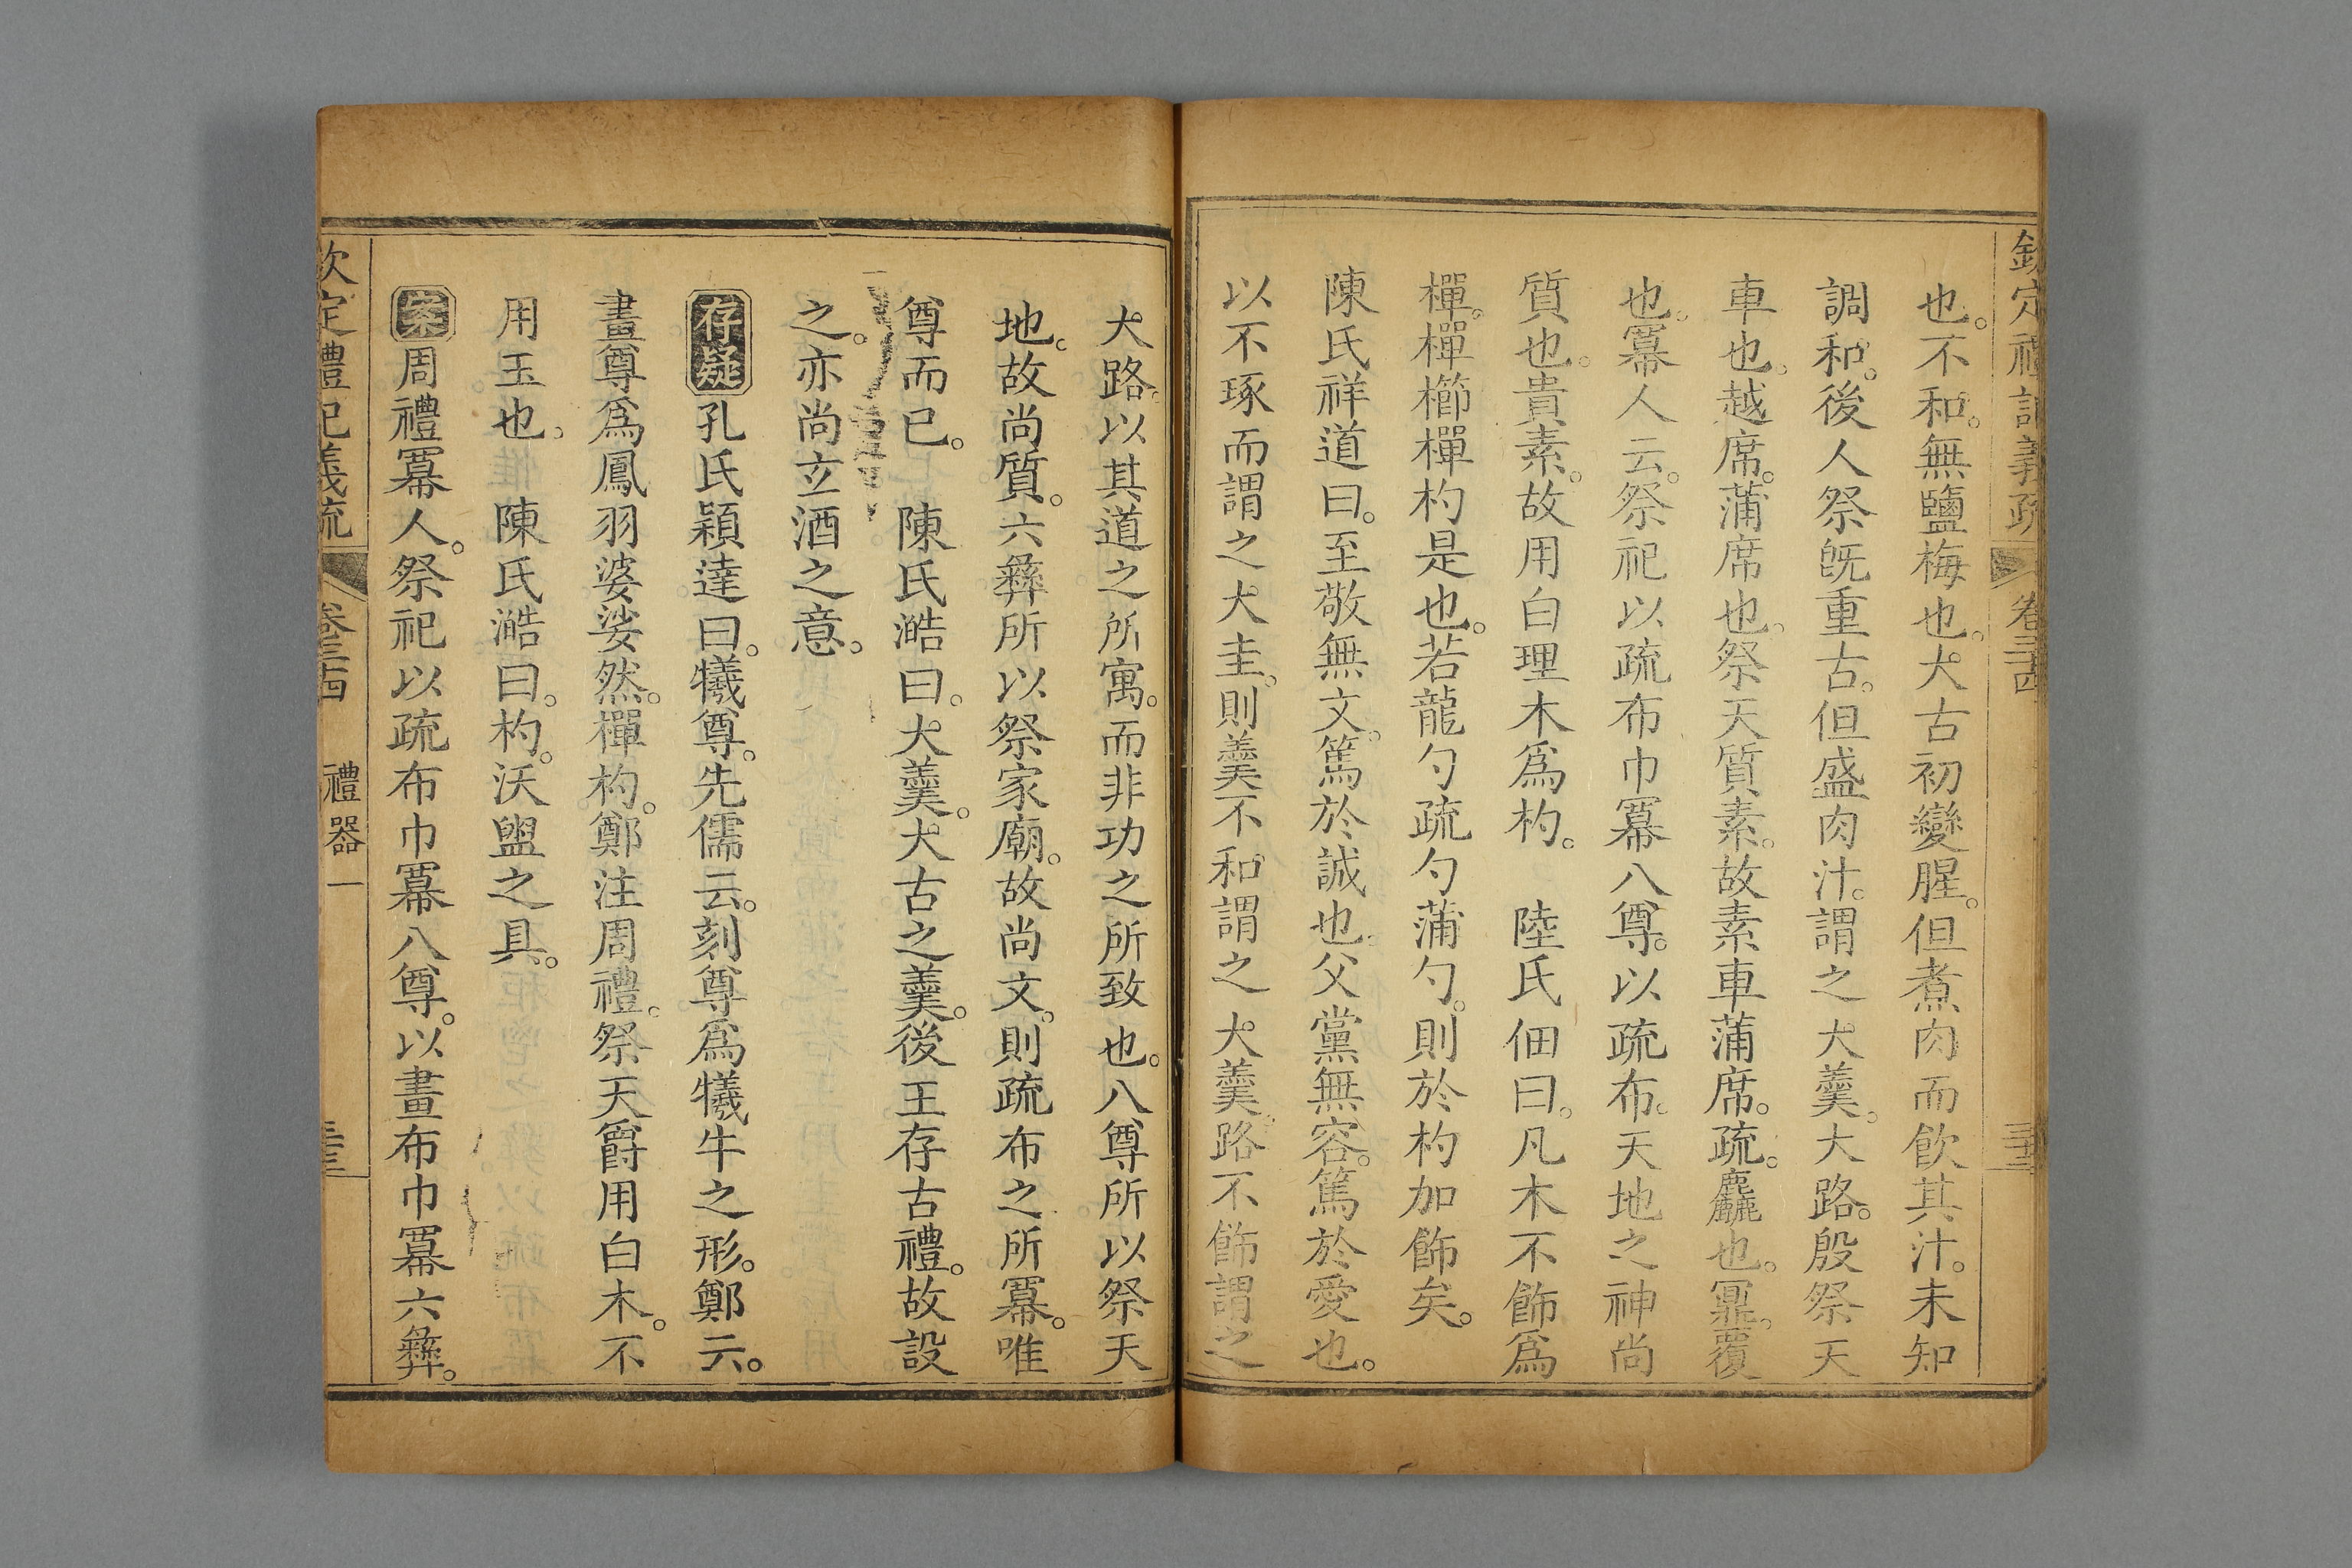 欽定禮記義疏 卷三十四 三十三
也。不和。無鹽梅也。大古初變腥。但煮肉而飲其汁。未知
調和。後人祭旣重古。但盛肉汁。謂之大羹。大路。殷祭天
車也。越席。蒲席也。祭天質素。故素車蒲席。疏。麤也。鼏。覆
也。冪人云。祭祀以疏布巾冪八尊。以疏布。天地之神尚
質也。貴素。故用白理木爲杓。　陸氏佃曰。凡木不飾爲
樿。樿櫛樿杓是也。若龍勺疏勺蒲勺。則於杓加飾矣。
陳氏祥道曰。至敬無文。篤於誠也。父黨無容。篤於愛也。
以不琢而謂之大圭。則羹不和謂之大羹。路不飾謂之
大路。以其道之所寓。而非功之所致也。八尊所以祭天
地。故尚質。六彝所以祭家廟。故尚文。則疏布之所冪。唯
尊而已。　陳氏澔曰。大羹。大古之羹。後王存古禮。故設
之。亦尚玄酒之意。
存疑孔氏穎達曰。犧尊。先儒云。刻尊爲犧牛之形。鄭云。
畫尊爲鳳羽婆娑然。樿杓。鄭注周禮。祭天爵用白木。不
用玉也。　陳氏澔曰。杓。沃盥之具。
案周禮冪人。祭祀以疏布巾冪八尊。以畫布巾冪六彝。
欽定禮記義疏 卷三十四 禮器一 三十三